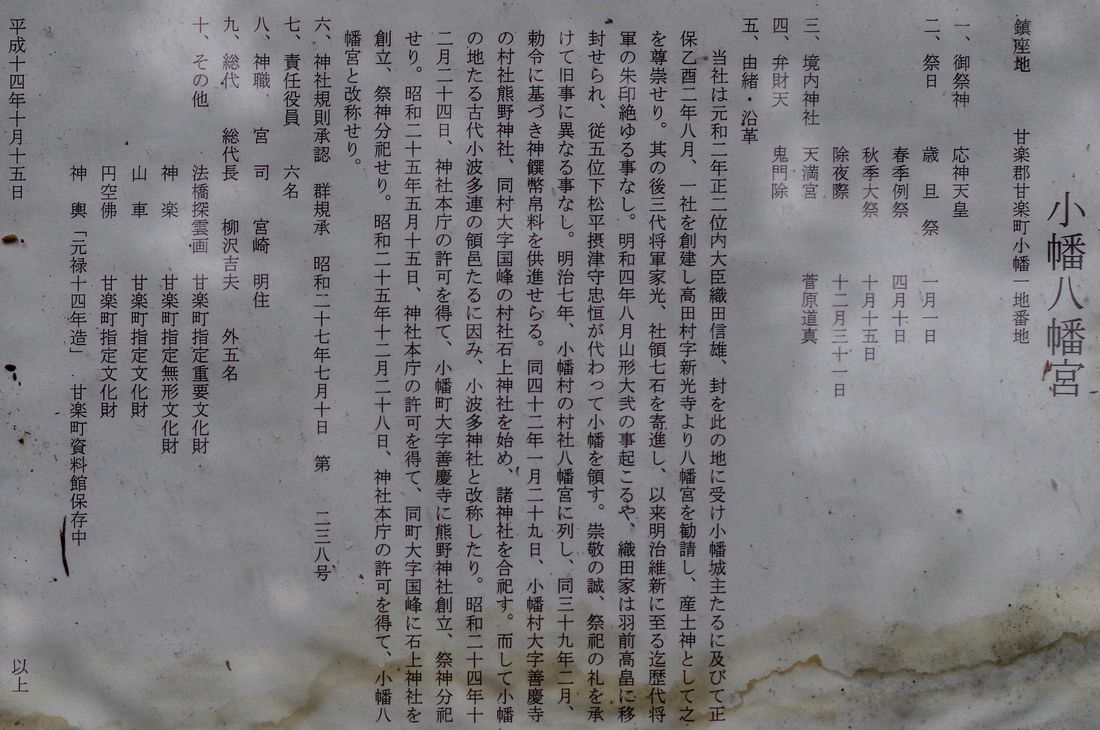 小幡八幡宮
鎮座地　甘楽郡甘楽町小幡一地番地
一、御祭神　応神天皇
二、祭日　歳旦祭　一月一日
春季例祭　四月十日
秋季大祭　十月十五日
除夜際　十二月三十一日
三、境内神社　天満宮　菅原道真
四、弁財天　鬼門除
五、由緒・沿革
当社は元和二年正二位内大臣織田信雄、封を此の地に受け小幡城主たるに及びて正
保乙酉二年八月、一社を創建し高田村字新光寺より八幡宮を勧請し、産土神として之
を尊崇せり。其の後三代将軍家光、社領七石を寄進し、以来明治維新に至る迄歴代将
軍の朱印絶ゆる事なし。明和四年八月山形大弐の事起こるや、織田家は羽前高畠に移
封せられ、従五位下松平摂津守忠恒が代わって小幡を領す。崇敬の誠、祭祀の礼を承
けて旧事に異なる事なし。明治七年、小幡村の村社八幡宮に列し、同三十九年二月、
勅令に基づき神饌幣帛料を供進せらる。同四十二年一月二十九日、小幡村大字善慶寺
の村社熊野神社、同村大字国峰の村社石上神社を始め、諸神社を合祀す。而して小幡
の地たる古代小波多連の領邑たるに因み、小波多神社と改称したり。昭和二十四年十
二月二十四日、神社本庁の許可を得て、小幡町大字善慶寺に熊野神社創立、祭神分祀
せり。昭和二十五年五月十五日、神社本庁の許可を得て、同町大字国峰に石上神社を
創立、祭神分祀せり。昭和二十五年十二月二十八日、神社本庁の許可を得て、小幡八
幡宮と改称せり。
六、神社規則承認　群規承　昭和二十七年七月十日　第　二三八号
七、責任役員　六名
八、神職　宮司　宮崎　明住
九、総代　総代長　柳沢吉夫　外五名
十、その他　法橋探雲画　甘楽町指定重要文化財
神楽　甘楽町指定無形文化財
山車　甘楽町指定文化財
円空佛　甘楽町指定文化財
神輿「元禄十四年造」　甘楽町資料館保存中
平成十四年十月十五日　以上